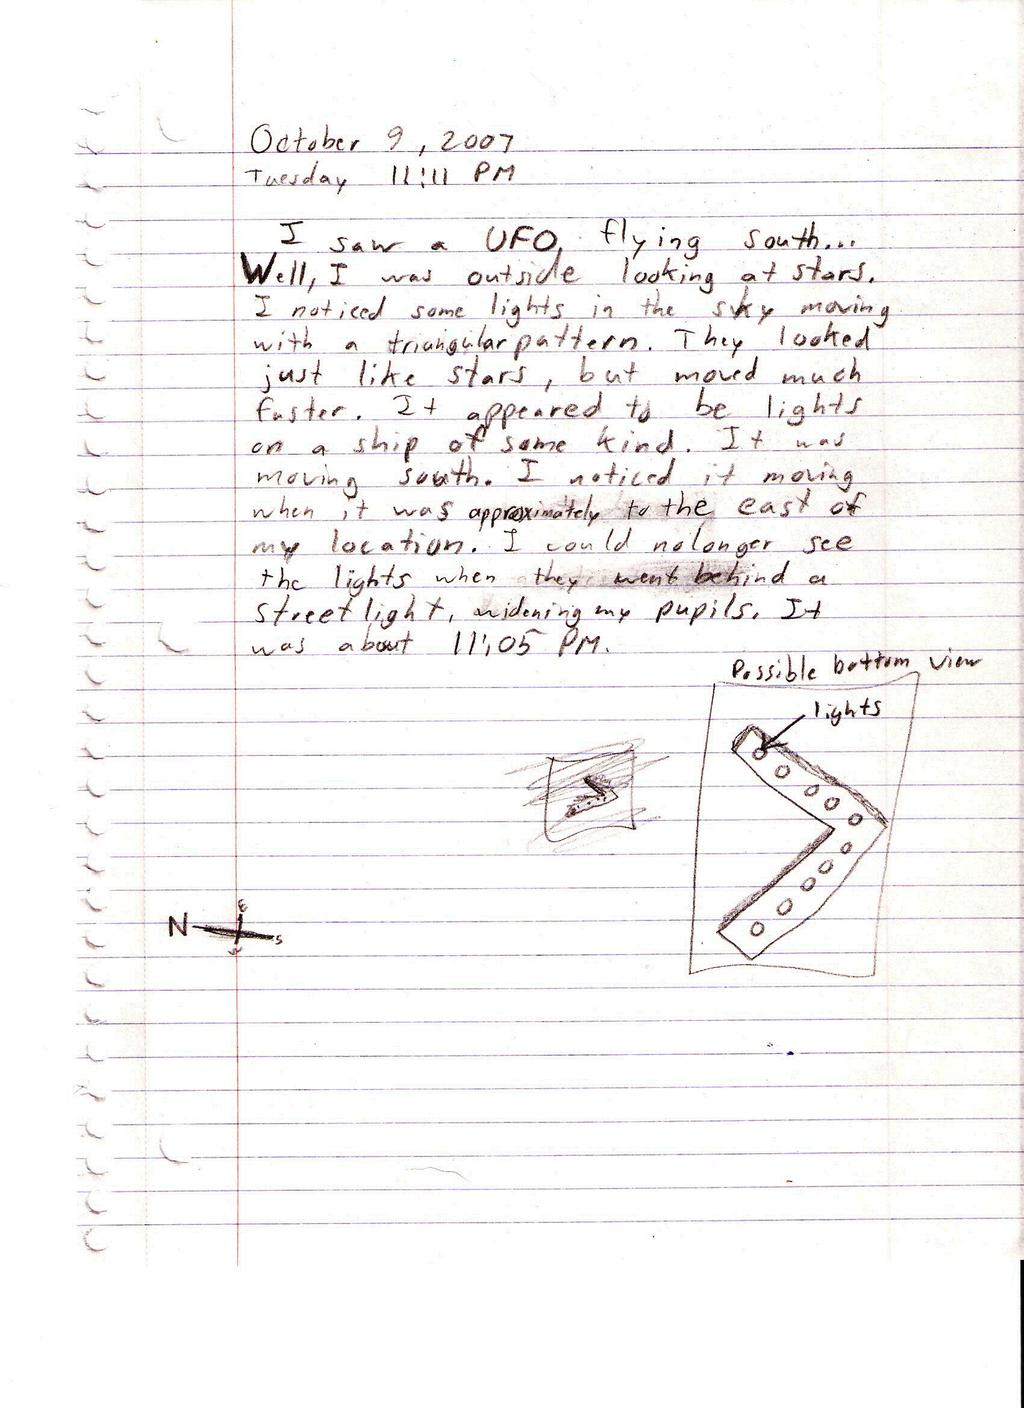 October 9, 2007
Tuesday 11:11 PM
I saw a UFO, flying south...
Well, I was outside looking at stars.
I noticed some lights in the sky moving
with a triangular pattern. They looked
just like stars, but moved much
faster. It appeared to be lights
on a ship of some kind. It was
moving south. I noticed it moving
when it was approximately to the east of
my location. I could no longer see
the lights when they went behind a
streetlight, widening my pupils. It
was about 11:05 PM.
Possible bottom view
lights
E
N
S
W